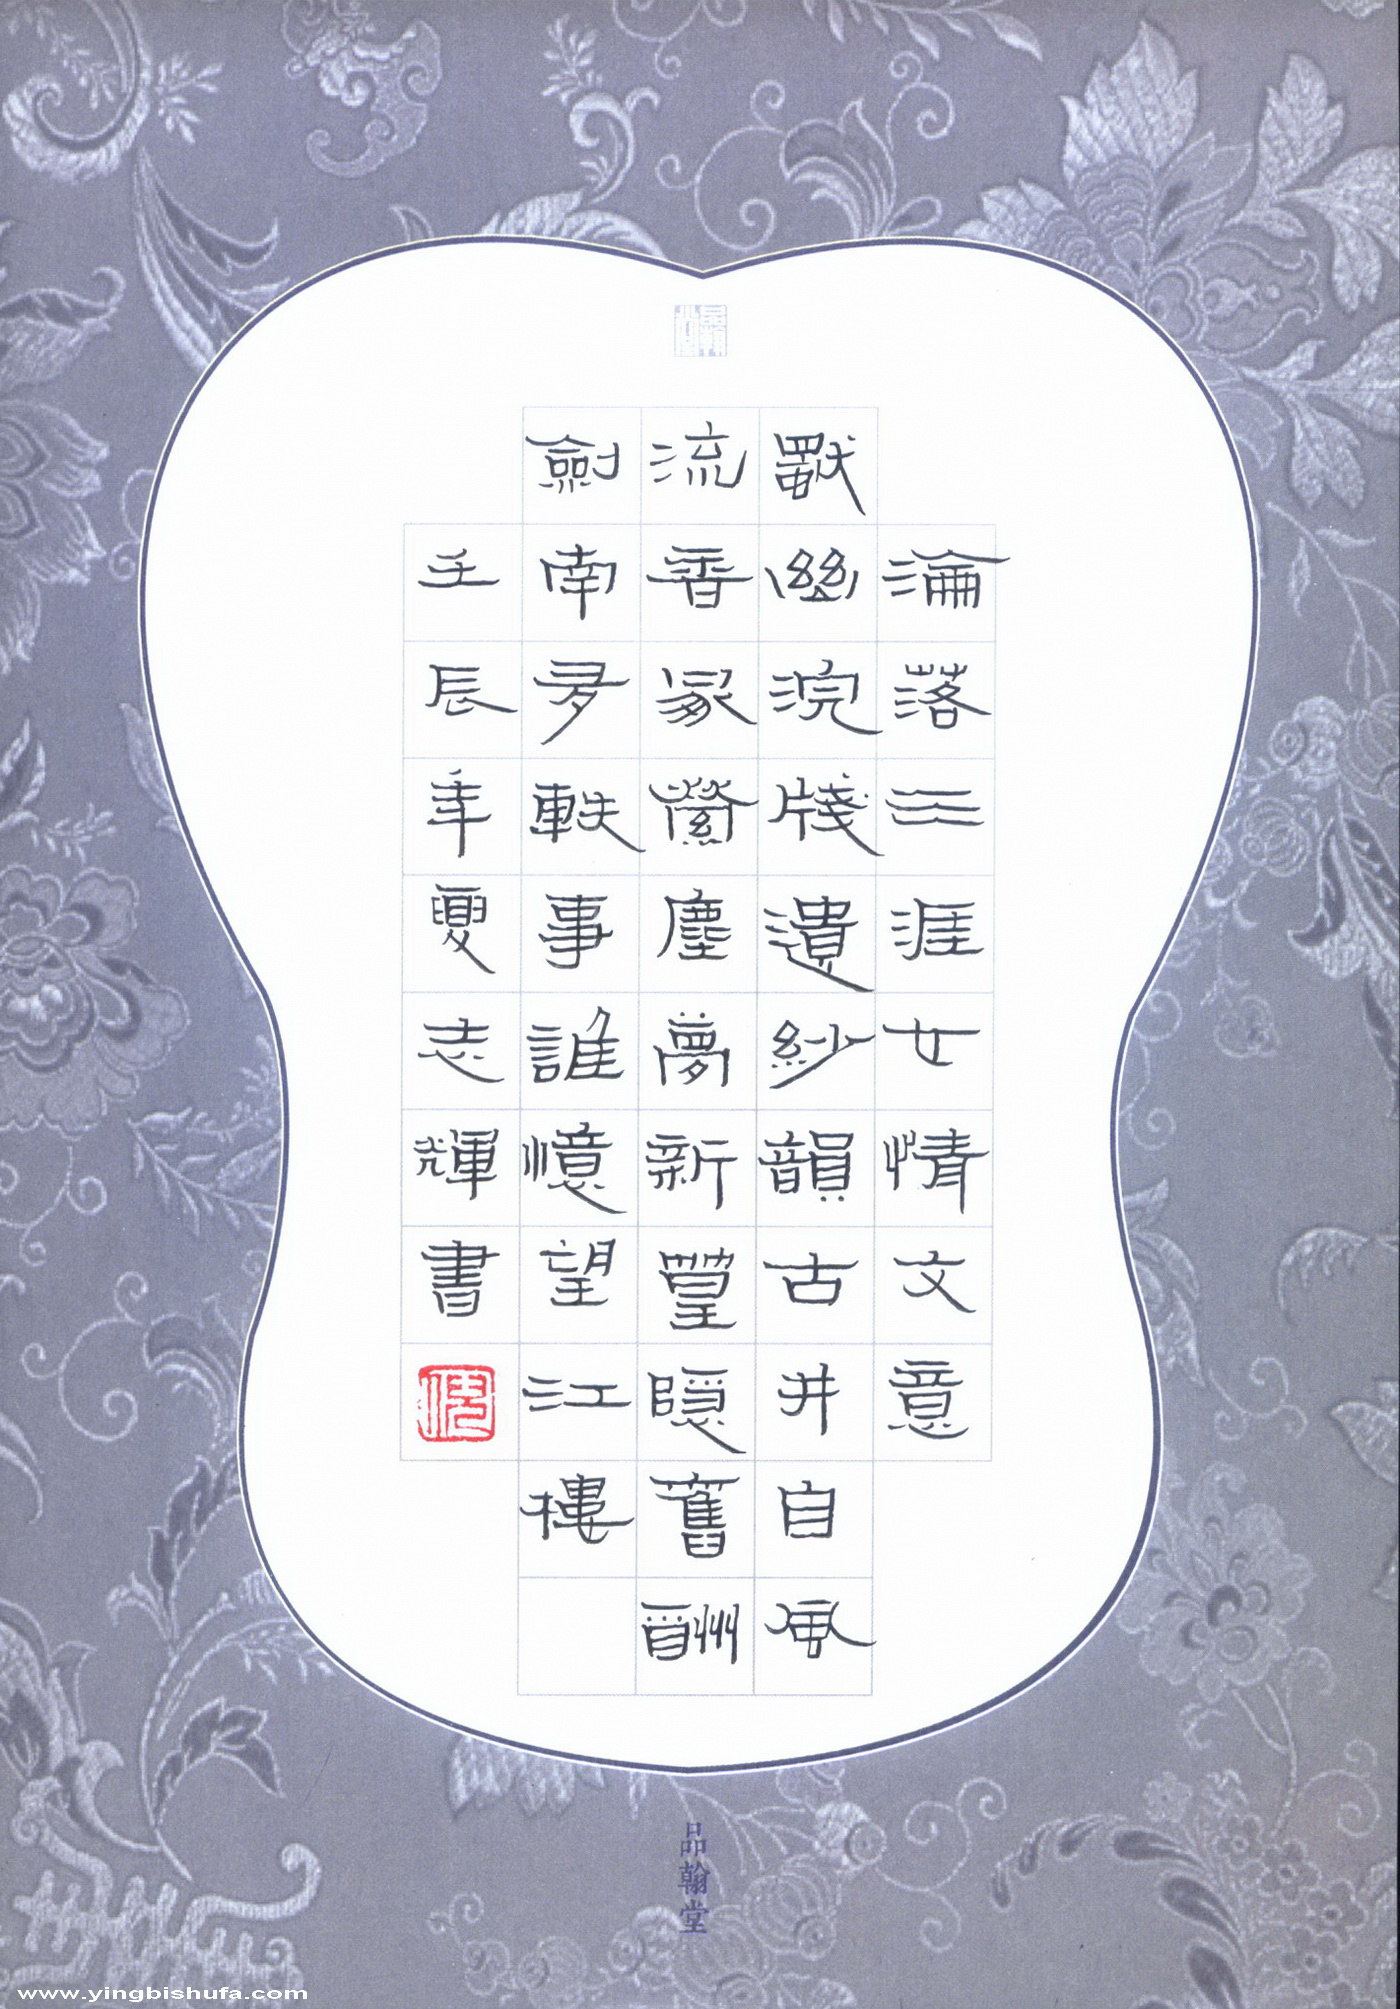 淪落天涯女情文意
獨幽浣牋遺紗韻古井自風
流香冢縈塵夢新篁隱舊酬
劍南多軼事誰憶望江樓
壬辰年夏志輝書
品翰堂
www.yingbishufa.com